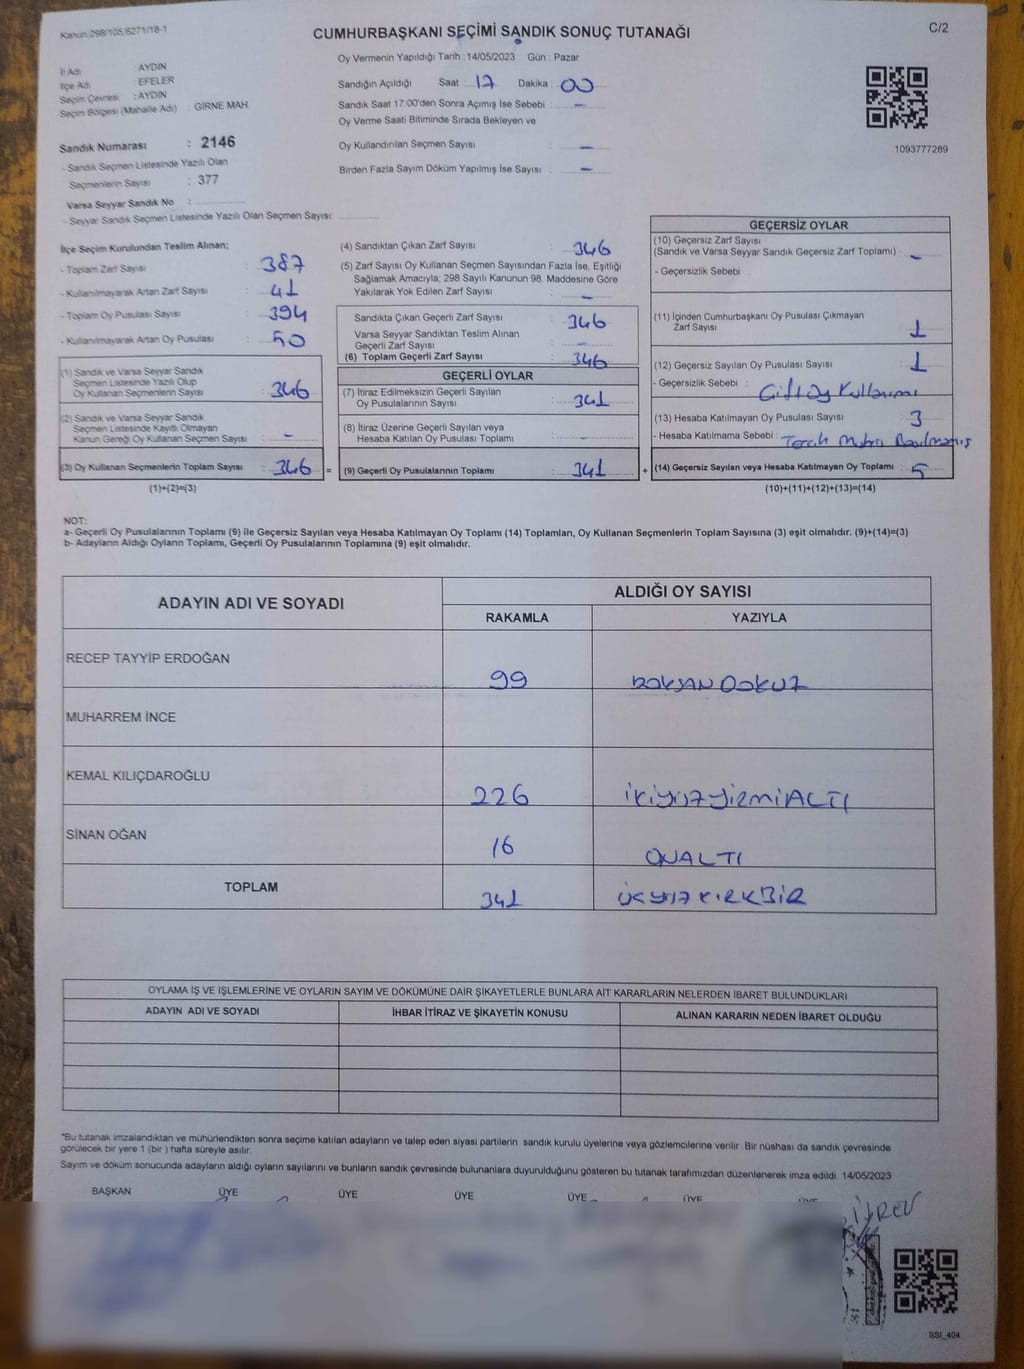 Kanun 298/105,6271/18-1
CUMHURBAŞKANI SEÇİMİ SANDIK SONUÇ TUTANAĞI
C/2
Oy Vermenin Yapıldığı Tarih : 14/05/2023 Gün : Pazar
İl Adı : AYDIN
İlçe Adı : EFELER
Seçim Çevresi : AYDIN
Seçim Bölgesi (Mahalle Adı) : GİRNE MAH
Sandığın Açıldığı Saat : 17 Dakika : 00
Sandık Saat 17:00'den Sonra Açımış İse Sebebi : -
Oy Verme Saati Bitiminde Sırada Bekleyen ve
Oy Kullandırılan Seçmen Sayısı : -
Birden Fazla Sayım Döküm Yapılmış İse Sayısı : -
1093777289
Sandık Numarası : 2146
- Sandık Seçmen Listesinde Yazılı Olan
Seçmenlerin Sayısı : 377
Varsa Seyyar Sandık No :
- Seyyar Sandık Seçmen Listesinde Yazılı Olan Seçmen Sayısı:
İlçe Seçim Kurulundan Teslim Alınan;
- Toplam Zarf Sayısı : 387
- Kullanılmayarak Artan Zarf Sayısı : 41
- Toplam Oy Pusulası Sayısı : 394
- Kullanılmayarak Artan Oy Pusulası : 50
(1) Sandık ve Varsa Seyyar Sandık
Seçmen Listesinde Yazılı Olup
Oy Kullanan Seçmenlerin Sayısı : 346
(2) Sandık ve Varsa Seyyar Sandık
Seçmen Listesinde Kayıtlı Olmayan
Kanun Gereği Oy Kullanan Seçmen Sayısı : -
(3) Oy Kullanan Seçmenlerin Toplam Sayısı : 346 =
(1)+(2)=(3)
(4) Sandıktan Çıkan Zarf Sayısı : 346
(5) Zarf Sayısı Oy Kullanan Seçmen Sayısından Fazla İse, Eşitliği
Sağlamak Amacıyla, 298 Sayılı Kanunun 98. Maddesine Göre
Yakılarak Yok Edilen Zarf Sayısı : -
Sandıkta Çıkan Geçerli Zarf Sayısı : 346
Varsa Seyyar Sandıktan Teslim Alınan
Geçerli Zarf Sayısı : -
(6) Toplam Geçerli Zarf Sayısı : 346
GEÇERLİ OYLAR
(7) İtiraz Edilmeksizin Geçerli Sayılan
Oy Pusulalarının Sayısı : 341
(8) İtiraz Üzerine Geçerli Sayılan veya
Hesaba Katılan Oy Pusulası Toplamı : -
(9) Geçerli Oy Pusulalarının Toplamı : 341 +
GEÇERSİZ OYLAR
(10) Geçersiz Zarf Sayısı
(Sandık ve Varsa Seyyar Sandık Geçersiz Zarf Toplamı) : -
- Geçersizlik Sebebi :
(11) İçinden Cumhurbaşkanı Oy Pusulası Çıkmayan
Zarf Sayısı : 1
(12) Geçersiz Sayılan Oy Pusulası Sayısı : 1
- Geçersizlik Sebebi : Çift Oy Kullanımı
(13) Hesaba Katılmayan Oy Pusulası Sayısı : 3
- Hesaba Katılmama Sebebi : Tercih Mührü Basılmamış
(14) Geçersiz Sayılan veya Hesaba Katılmayan Oy Toplamı : 5
(10)+(11)+(12)+(13)=(14)
NOT:
a- Geçerli Oy Pusulalarının Toplamı (9) ile Geçersiz Sayılan veya Hesaba Katılmayan Oy Toplamı (14) Toplamları, Oy Kullanan Seçmenlerin Toplam Sayısına (3) eşit olmalıdır. (9)+(14)=(3)
b- Adayların Aldığı Oyların Toplamı, Geçerli Oy Pusulalarının Toplamına (9) eşit olmalıdır.
ADAYIN ADI VE SOYADI
ALDIĞI OY SAYISI
RAKAMLA YAZIYLA
RECEP TAYYİP ERDOĞAN 99 DOKSAN DOKUZ
MUHARREM İNCE
KEMAL KILIÇDAROĞLU 226 İKİYÜZ YİRMİALTI
SİNAN OĞAN 16 ONALTI
TOPLAM 341 ÜÇYÜZ KIRKBİR
OYLAMA İŞ VE İŞLEMLERİNE VE OYLARIN SAYIM VE DÖKÜMÜNE DAİR ŞİKAYETLERLE BUNLARA AİT KARARLARIN NELERDEN İBARET BULUNDUKLARI
ADAYIN ADI VE SOYADI İHBAR İTİRAZ VE ŞİKAYETİN KONUSU ALINAN KARARIN NEDEN İBARET OLDUĞU
*Bu tutanak imzalandıktan ve mühürlendikten sonra seçime katılan adayların ve talep eden siyasi partilerin sandık kurulu üyelerine veya gözlemcilerine verilir. Bir nüshası da sandık çevresinde
görülecek bir yere 1 (bir ) hafta süreyle asılır.
Sayım ve döküm sonucunda adayların aldığı oyların sayılarını ve bunların sandık çevresinde bulunanlara duyurulduğunu gösteren bu tutanak tarafımızdan düzenlenerek imza edildi. 14/05/2023
BAŞKAN ÜYE ÜYE ÜYE ÜYE ÜYE ÜYE
SSI_404